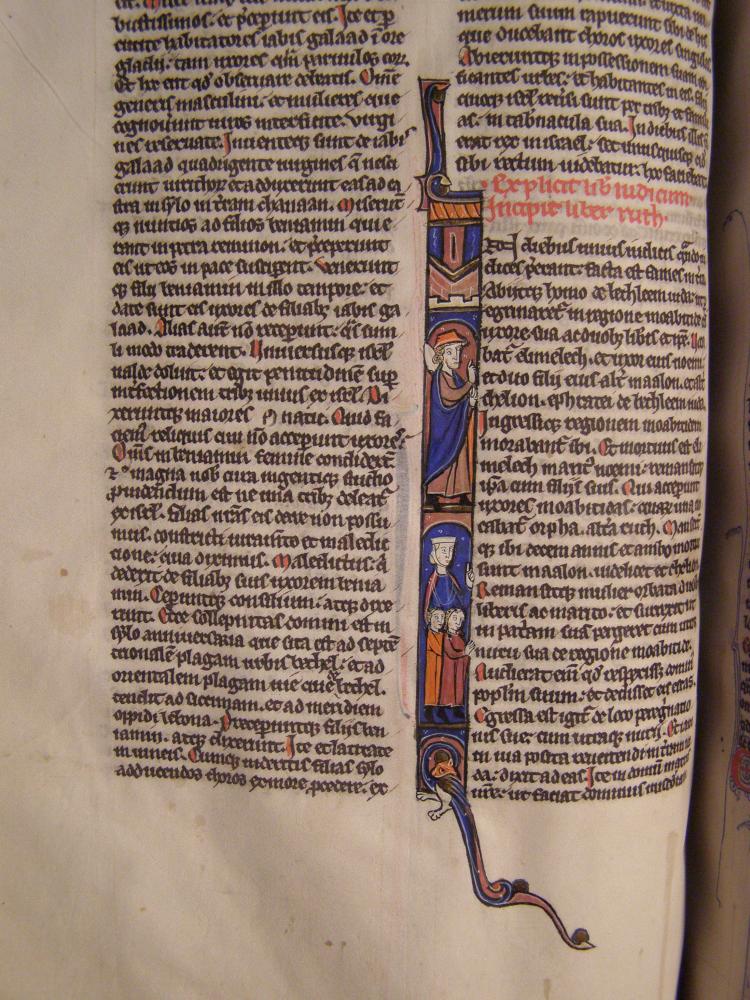 bicissimos. et p̄ceperunt eis. Ite et p
cutite habitatores iabis galaad ī ore
gladii. tam uxores q̄m paruulos eoꝝ.
Et hoc erit qd̓ obseruare debetis. Omne
generis masculini. et mulieres que
cognouerunt uiros interficite. uirgi
nes reseruate. Inuenteqꝫ sunt de iabis
galaad quadringente uirgines q̄ nesci
erunt uiri thorū et adduxerunt eas ad ca
stra in sylo in terram chanaan. Miserunt
qꝫ nuncios ad filios beniamin qui e
rant in petra remmon. et p̄ceperunt
eis ut eos in pace susciperent. Venerunt
qꝫ filii beniamin in illo tempore. et
date sunt eis uxores de filiabꝫ iabis ga
laad. Alias aut̄ nō reppererunt. q̄s simi
li modo traderent. Uniuersusqꝫ isrl̓
ualde doluit. et egit penitentiā sup̄
interfectionem tribꝰ unius ex isrl̓. Di
xeruntqꝫ maiores natu. Quid fa
ciem̄ reliquis qui nō acceperunt uxores.
Om̄s in beniamin femine conciderunt.
et magna nob̄ cura ingentiqꝫ studio
prouidendum est ne una tribꝫ deleat̄
ex isrl̓. filias n̄ras eis dare non possu
mus. constricti iuramento et maledic
tione. qua diximus. Maledictus. q̄
dederit de filiabꝫ suis uxorem benia
min. Ceperuntqꝫ consilium. atqꝫ dixe
runt. Ecce sollepnitas domini est in
sylo anniuersaria que sita est ad septē
trionalem plagam urbis bethel. et ad
orientalem plagam uie que de bethel
tendit ad sicimam. et ad meridiem
oppidi lebona. Preceperuntqꝫ filiis ben
iamin. atqꝫ dixerunt. Ite et latitate
in uineis. Cumqꝫ uideritis filias sylo
ad ducendos choros ex more p̄cedere. ex
numerum suum rapuerunt sibi de his
que ducebant choros uxores singulas
Abieruntqꝫ in possessionem suam edi
ficantes urbes. et habitantes in eis. filii
quoqꝫ isrl̓ reuersi sunt per tribꝫ et famili
as. in tabnacula sua. In diebus illis n̄
erat rex in israel. set unusquisqꝫ qd̓
sibi rectum uidebatur. hoc faciebat.
Explicit lib̓ iudicum
Incipit liber ruth.
In diebus unius iudicis quādo iu
dices p̄erant. facta est fames in t̄ra
Abiitqꝫ homo de bethleem iuda. ut p
egrinaret̄ in regione moabitide cū
uxore sua ac duobꝫ libis et ip̄e. uoca
bat̄ elimelech. et uxor eius noemi.
et duo filii eius alt̄ maalon. et alt̄
chelion. ephratei de bethleem iuda.
Ingressiqꝫ regionem moabitidem
morabant̄ ibi. Et mortuus est eli
melech marit̓ noemi. remansitqꝫ
ip̄a cum filiis suis. Qui acceperunt
uxores moabitidas. quaꝝ una uo
cabat̄ orpha. alt̄a ruth. Manser̄t
qꝫ ibi decem annis et ambo mortui
sunt maalon. uidelicet et chelion.
Remansitqꝫ mulier orbata duobꝫ
liberis ac marito. et surrexit ut
in patriam suā pergeret cum utraqꝫ
nuru sua de regione moabitide.
Audierat eīm qd̓ respexiss̓ dominꝰ
poplm̄ suum. et dedisset eis escas.
Egressa est igit̄ de loco peregrinatio
nis sue. cum utraqꝫ nuru. Et iam
in uia posita reuertendi in t̄ram iu
da. dixit ad eas. Ite in domū matris
ur̄e. ut faciat dominus uobiscū